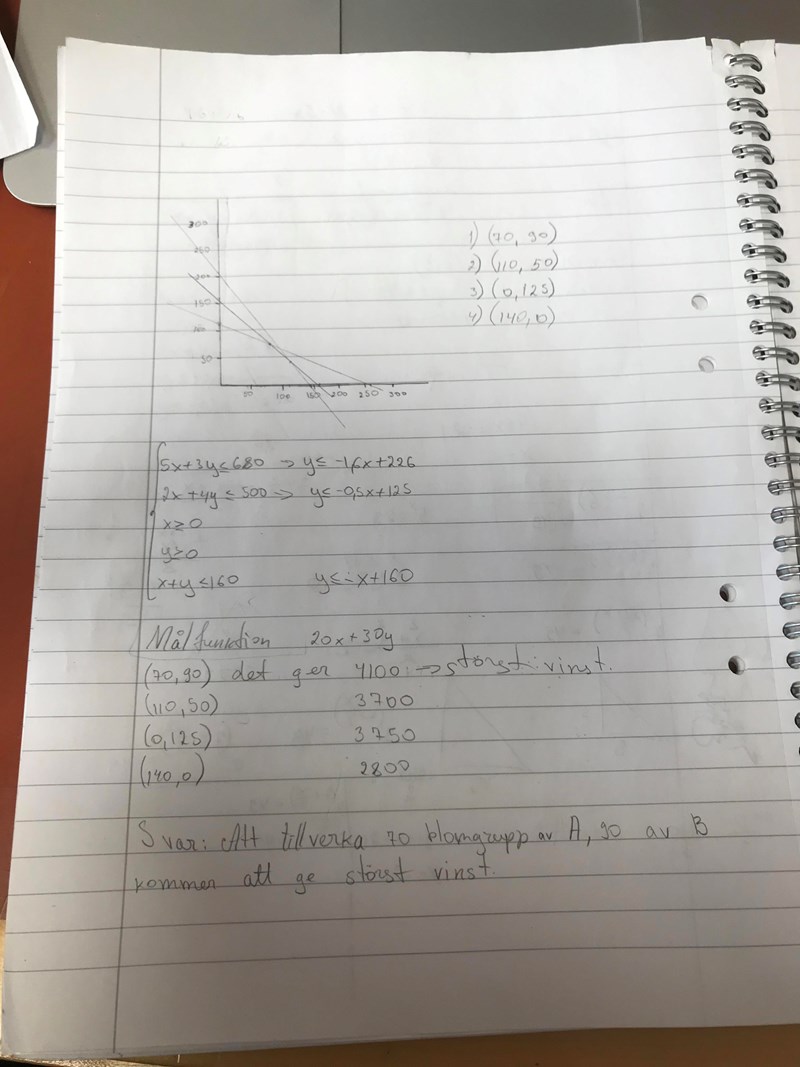 300
250
200
150
100
50
50 100 150 200 250 300
1) (70, 90)
2) (110, 50)
3) (0,125)
4) (140,0)
5x+3y≤680 → y≤ -1,6x+226
2x+4y ≤ 500 → y≤-0,5x+125
x≥0
y≥0
x+y ≤160 y≤-x+160
Målfunktion 20x+30y
(70,90) det ger 4100 → störst vinst.
(110,50) 3700
(0,125) 3750
(140,0) 2800
Svar: Att tillverka 70 blomgrupp av A, 90 av B
kommer att ge störst vinst.